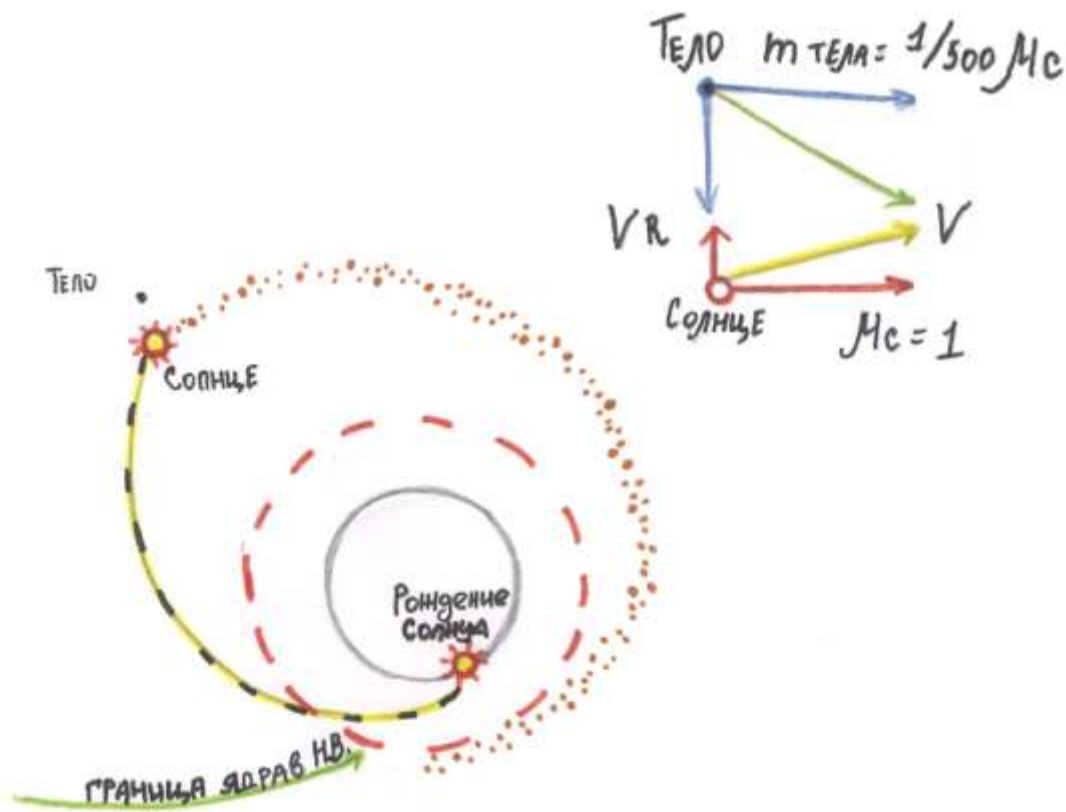 ТЕЛО m ТЕЛА = 1/500 Мс
VR
V
СОЛНЦЕ
Мс = 1
ТЕЛО
СОЛНЦЕ
РОЖДЕНИЕ
СОЛНЦА
ГРАНИЦА ЯДРА В Н.В.